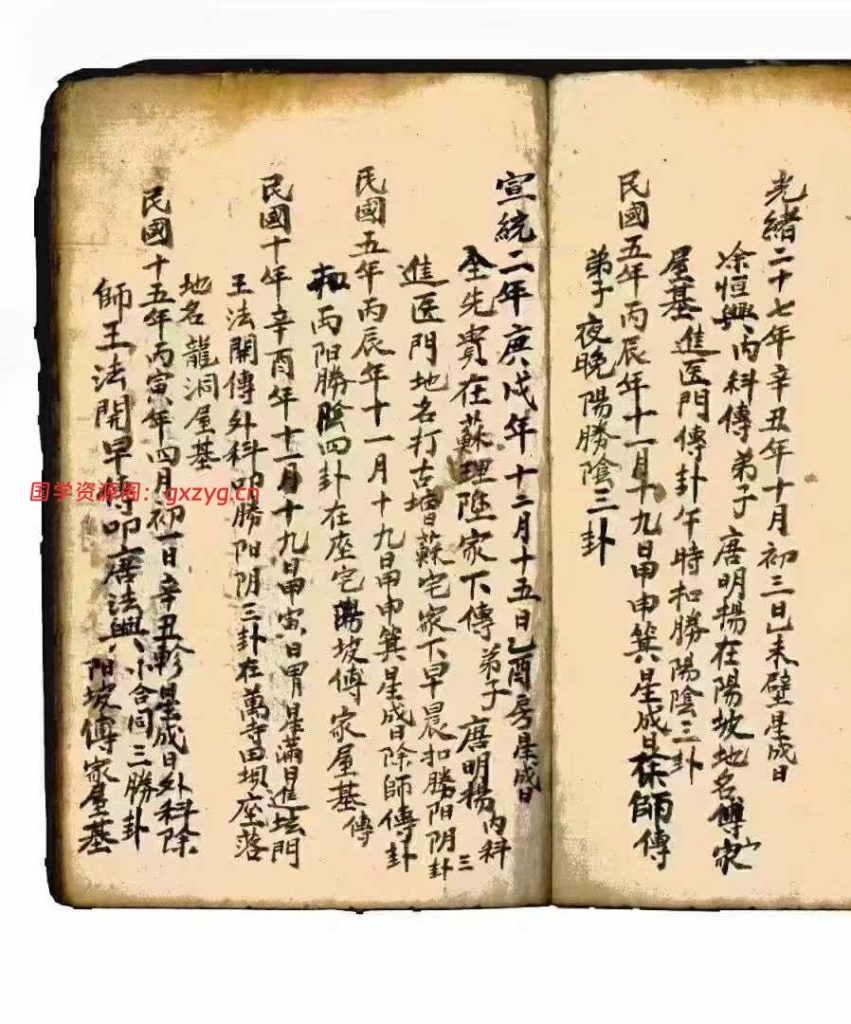 光緒二十七年辛丑年十月初三日乙未壁星成日
凃恒興内科傳弟子唐明揚在陽坡地名傅家
屋基進医門傳卦午時扣勝陽陰三卦
民國五年丙辰年十一月十九日甲申箕星成日 師傳
弟子夜晚陽勝陰三卦
宣統二年庚戍年十二月十五日乙酉房星成日
全先貴在蘇理陞家下傳弟子唐明揚内科
進医門地名打古 蘇宅家下早晨扣勝阳阴卦三
民國五年丙辰年十一月十九日甲申箕星成日除師傳卦
丙阳勝 四卦在座宅 坡傅家屋基傳
民國十年辛酉年十一月十九日甲寅日胃星滿日進坛門
王法開傳外科叩勝阳阴三卦在萬寺田坝座落
地名龍洞屋基
民國十五年丙寅年四月初一日辛丑軫星成日外科除
師王法開早 叩唐法興 合同三勝卦
阳坡傅家屋基
国学资源阁：gxzyg.cn